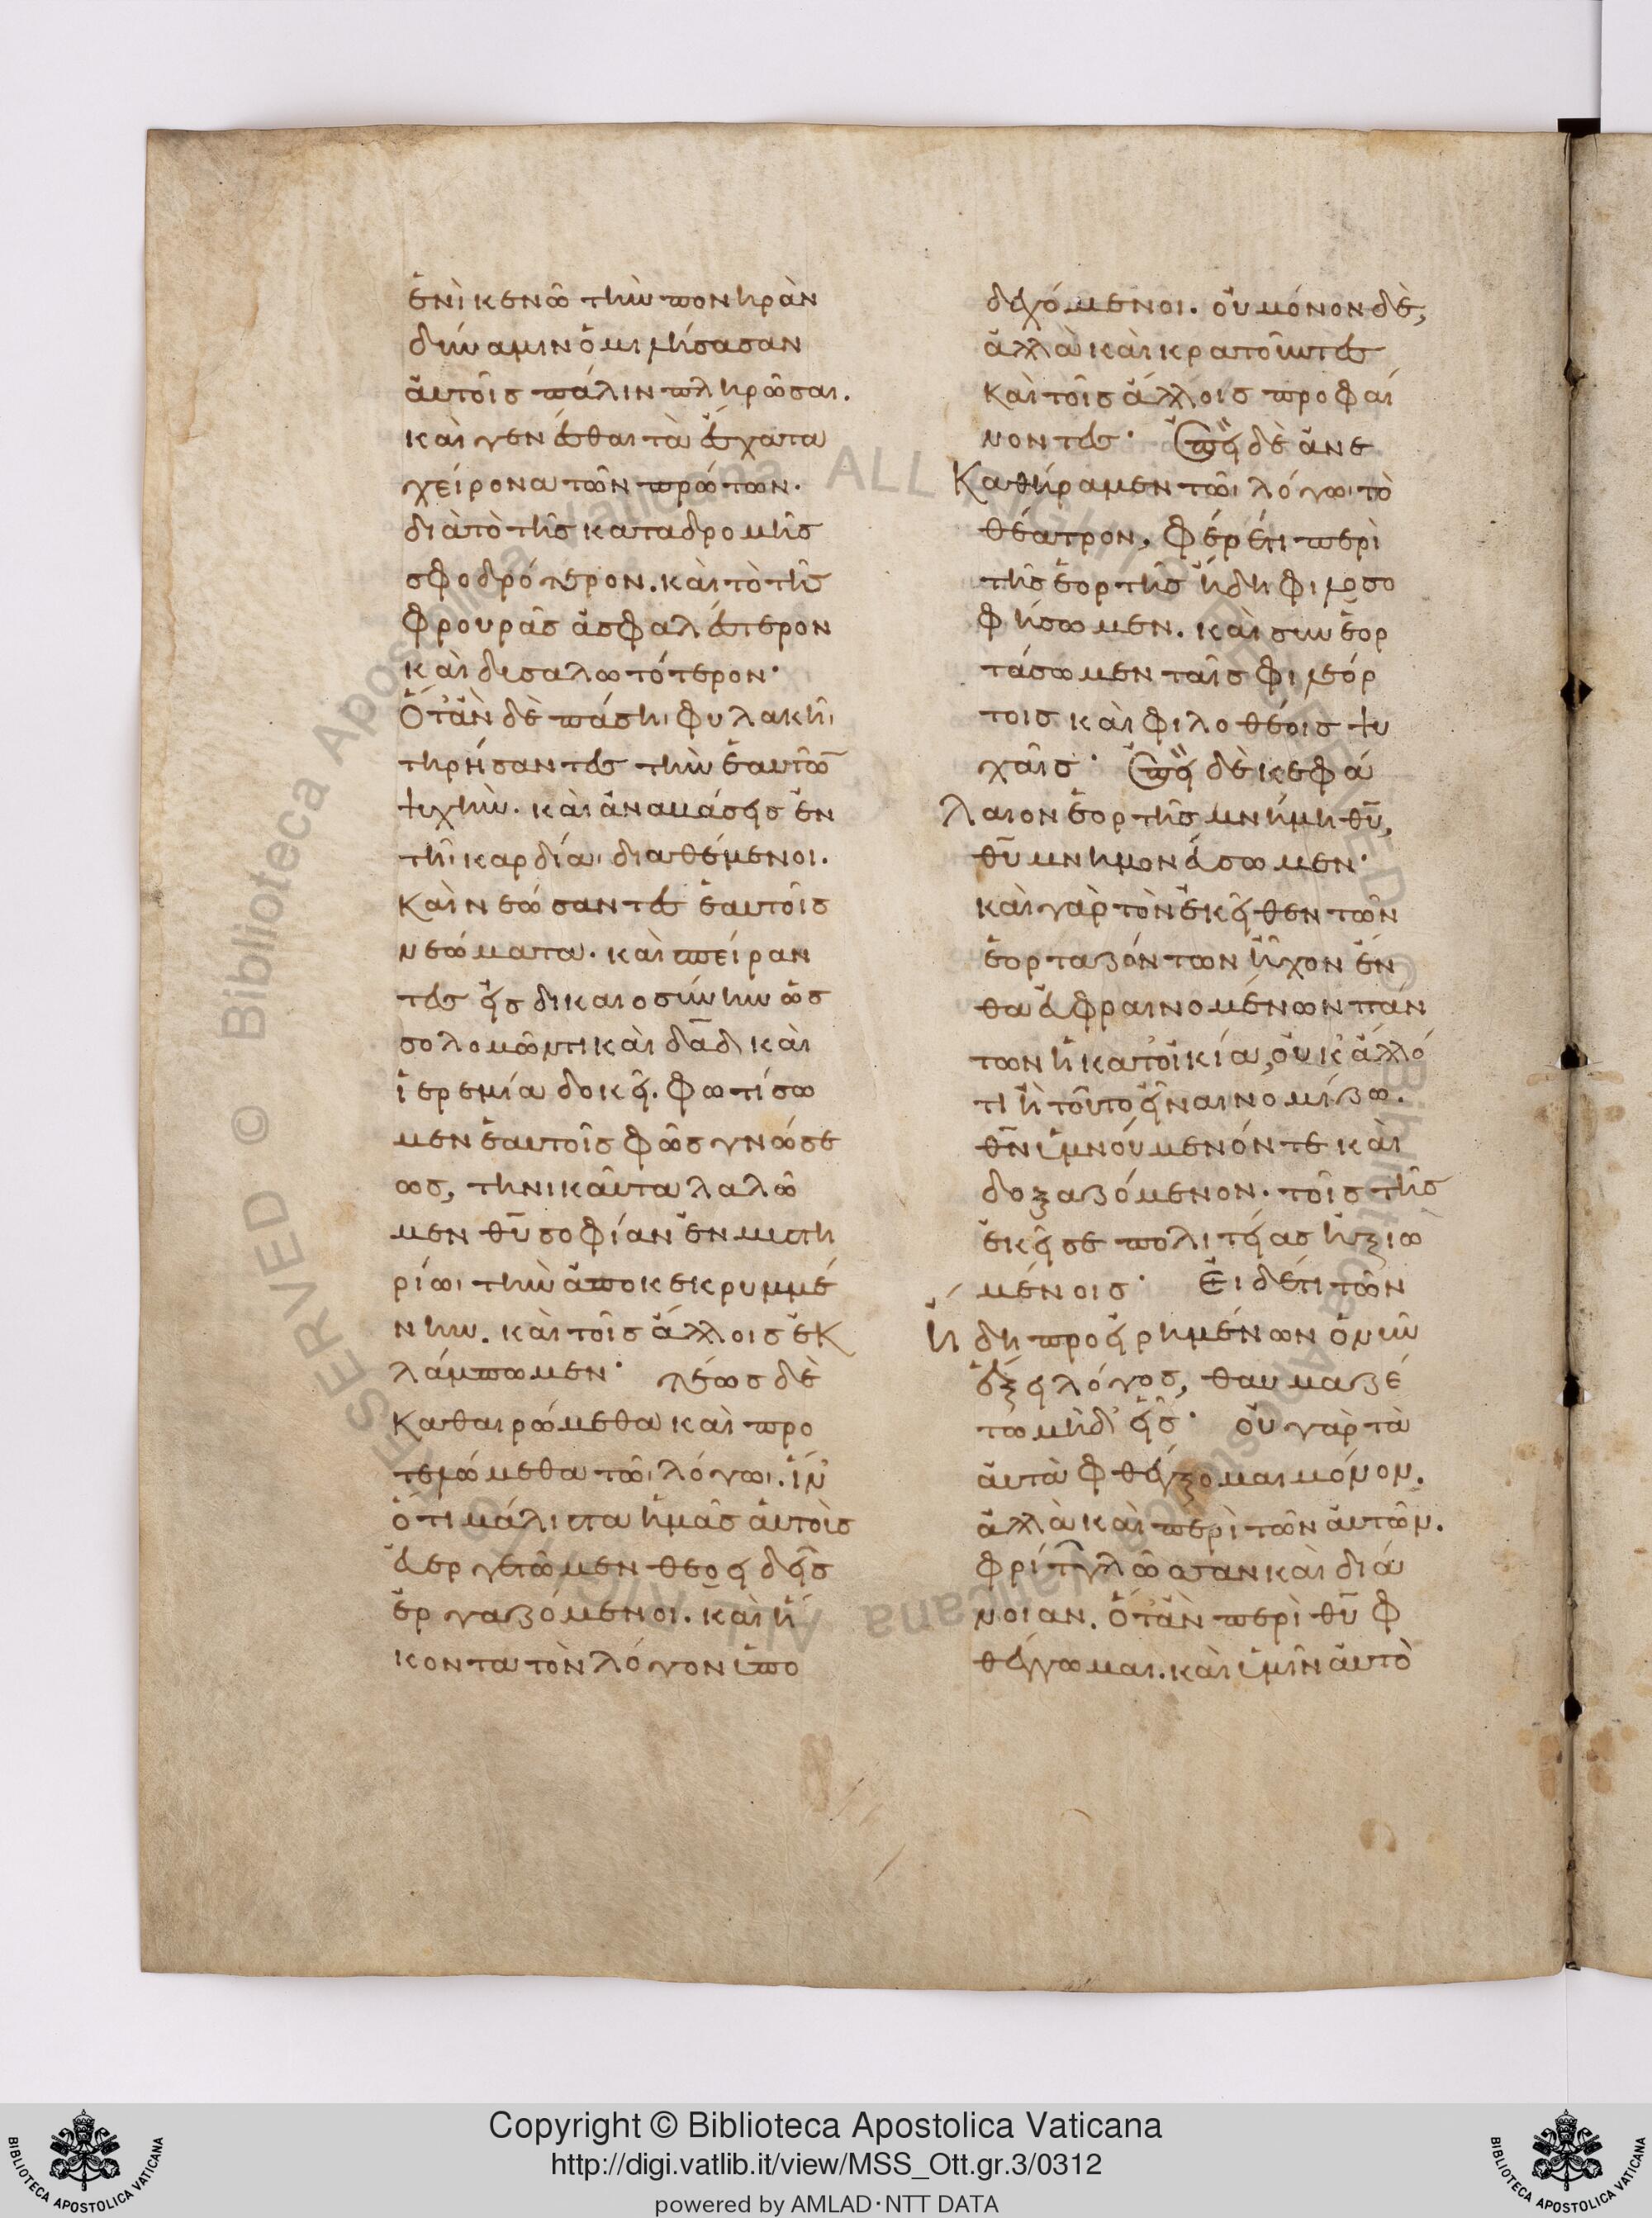 ἐνὶ κενῶ τὴν πονηρὰν
δύναμιν ὁμιλήσασαν
αὐτοῖς πάλιν πληρῶσαι.
καὶ γενέσθαι τὰ ἔσχατα
χείρονα τῶν πρώτων·
διὰ τὸ τῆς καταδρομῆς
σφοδρότερον. καὶ τὸ τῆς
φρουρᾶς ἀσφαλέστερον
καὶ δυσαλωτότερον·
Ὅτἂν δὲ πάσηι φυλακῆι
τηρήσαντες τὴν ἑαυτῶ̄
ψυχὴν. καὶ ἀναβάσεις ἐν
τῆι καρδίαι διαθέμενοι.
καὶ νεώσαντες ἑαυτοῖς
νεώματα. καὶ σπείραν
τες εἰς δικαιοσύνην ὡς
σολομῶντι καὶ δᾱδ καὶ
ἱερεμία δοκεῖ. φωτίσω
μεν ἑαυτοῖς φῶς γνώσε
ως, τηνικαῦτα λαλῶ
μεν θῡ σοφίαν ἐν μυστη
ρίωι τὴν ἀποκεκρυμμέ
νην. καὶ τοῖς ἄλλοις ἐκ
λάμπωμεν· τέως δὲ
καθαιρώμεθα καὶ προ
τελώμεθα τῶι λόγωι. ἵν'
ὅτι μάλιστα ἡμᾶς αὐτοὺς
εὐεργετῶμεν θεοειδεῖς
ἐργαζόμενοι. καὶ ἥ
κοντα τὸν λόγον ὑπο
δεχόμενοι. οὐ μόνον δὲ,
ἀλλὰ καὶ κρατοῦντες
καὶ τοῖς ἄλλοις προφαί
νοντες· Ἐπεὶ δὲ ἀνε
Καθήραμεν τῶι λόγωι τὸ
θέατρον, φέρέ τι περὶ
τῆς ἑορτῆς ἤδη φιλοσο
φήσωμεν. καὶ συνεορ
τάσωμεν ταῖς φιλεόρ
τοις καὶ φιλοθέοις ψυ
χαῖς· Ἐπεὶ δὲ κεφά
λαιον ἑορτῆς μνήμη θῡ,
θῡ μνημονεύσωμεν·
καὶ γὰρ τὸν ἐκεῖθεν τῶν
ἑορταζόντων ἦχον ἔν
θα εὐφραινομένων πάν
των ἡ κατοικία, οὐκ ἄλλό
τι ἢ τοῦτο εἶναι νομίζω.
θν̄ ὑμνούμενόν τε καὶ
δοξαζόμενον· τοῖς τῆς
ἐκεῖσε πολιτείας ἠξιω
μένοις· Εἰ δέ τι τῶν
ἤδη προειρημένων ὁ νῦν
ἕξει λόγος, θαυμαζέ
τω μηδ' εἷς· οὐ γὰρ τὰ
αὐτὰ φθέγξομαι μόνον.
ἀλλὰ καὶ περὶ τῶν αὐτῶν.
φρίττων γλῶσσαν καὶ διά
νοιαν. Ὅτἂν περὶ θῡ φ
θέγγωμαι. καὶ ὑμῖν αὐτὸ
Copyright © Biblioteca Apostolica Vaticana
http://digi.vatlib.it/view/MSS_Ott.gr.3/0312
powered by AMLAD·NTT DATA